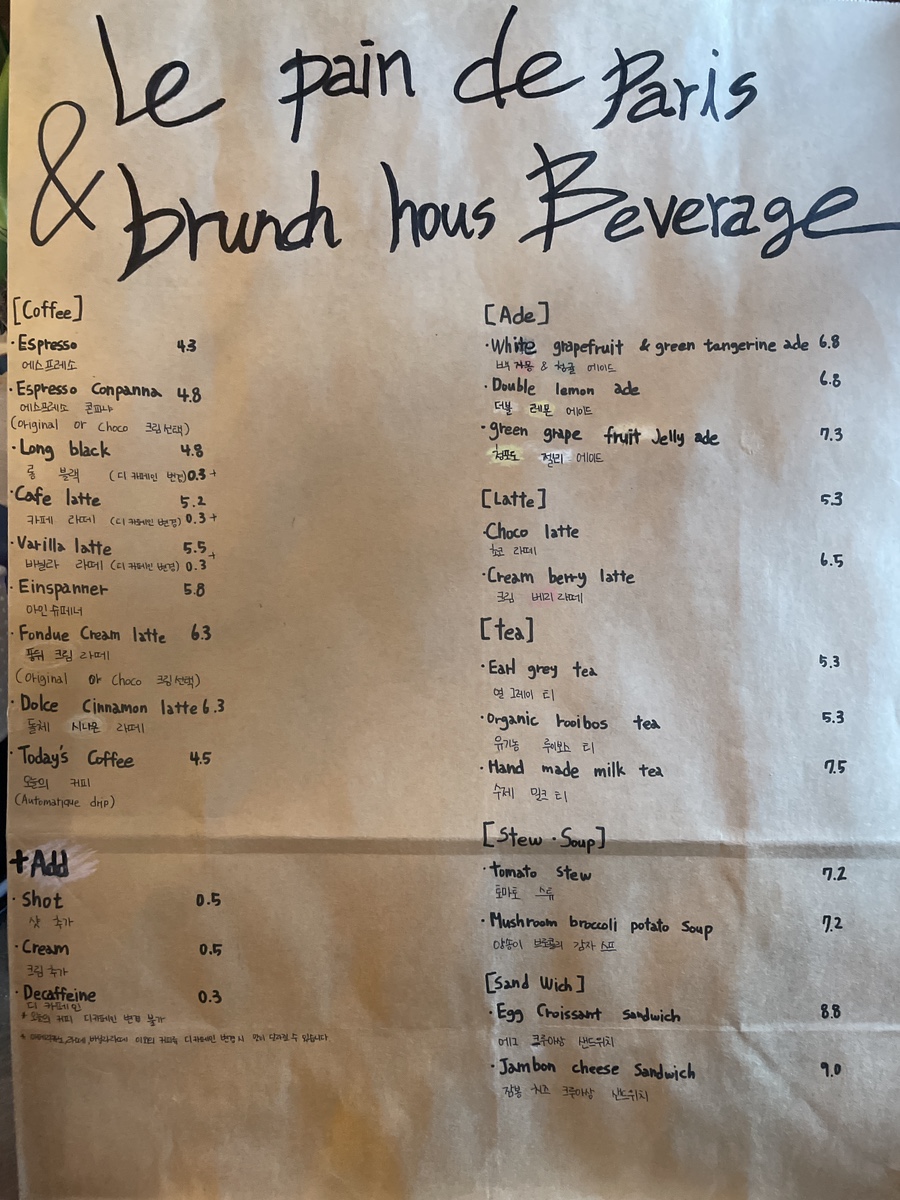 Le pain de Paris
& brunch hous Beverage
[Coffee]
·Espresso 4.3
에스프레소
·Espresso Conpanna 4.8
에스프레소 콘파냐
(Original or Choco 크림선택)
·Long black 4.8
롱 블랙 (디카페인 변경)0.3+
·Cafe latte 5.2
카페 라떼 (디카페인 변경) 0.3+
·Varilla latte 5.5
바닐라 라떼 (디카페인 변경) 0.3+
·Einspanner 5.8
아인슈페너
·Fondue Cream latte 6.3
퐁뒤 크림 라떼
(Original or Choco 크림선택)
·Dolce Cinnamon latte 6.3
돌체 시나몬 라떼
·Today's Coffee 4.5
오늘의 커피
(Automatique drip)
+Add
·Shot 0.5
샷 추가
·Cream 0.5
크림 추가
·Decaffeine 0.3
디카페인
* 오늘의 커피 디카페인 변경 불가
라떼, 바닐라라떼 이외의 커피는 디카페인 변경시 맛이 달라질 수 있습니다
[Ade]
·White grapefruit & green tangerine ade 6.8
백자몽 & 청귤 에이드
·Double lemon ade 6.8
더블 레몬 에이드
·green grape fruit Jelly ade 7.3
청포도 젤리 에이드
[Latte] 5.3
·Choco latte
초코 라떼
6.5
·Cream berry latte
크림 베리 라떼
[tea]
·Earl grey tea 5.3
얼 그레이 티
·Organic rooibos tea 5.3
유기농 루이보스 티
·Hand made milk tea 7.5
수제 밀크 티
[Stew·Soup]
·tomato Stew 7.2
토마토 스튜
·Mushroom broccoli potato Soup 7.2
양송이 브로콜리 감자 스프
[Sand Wich]
·Egg Croissant sandwich 8.8
에그 크루아상 샌드위치
·Jambon cheese Sandwich 9.0
잠봉 치즈 크루아상 샌드위치